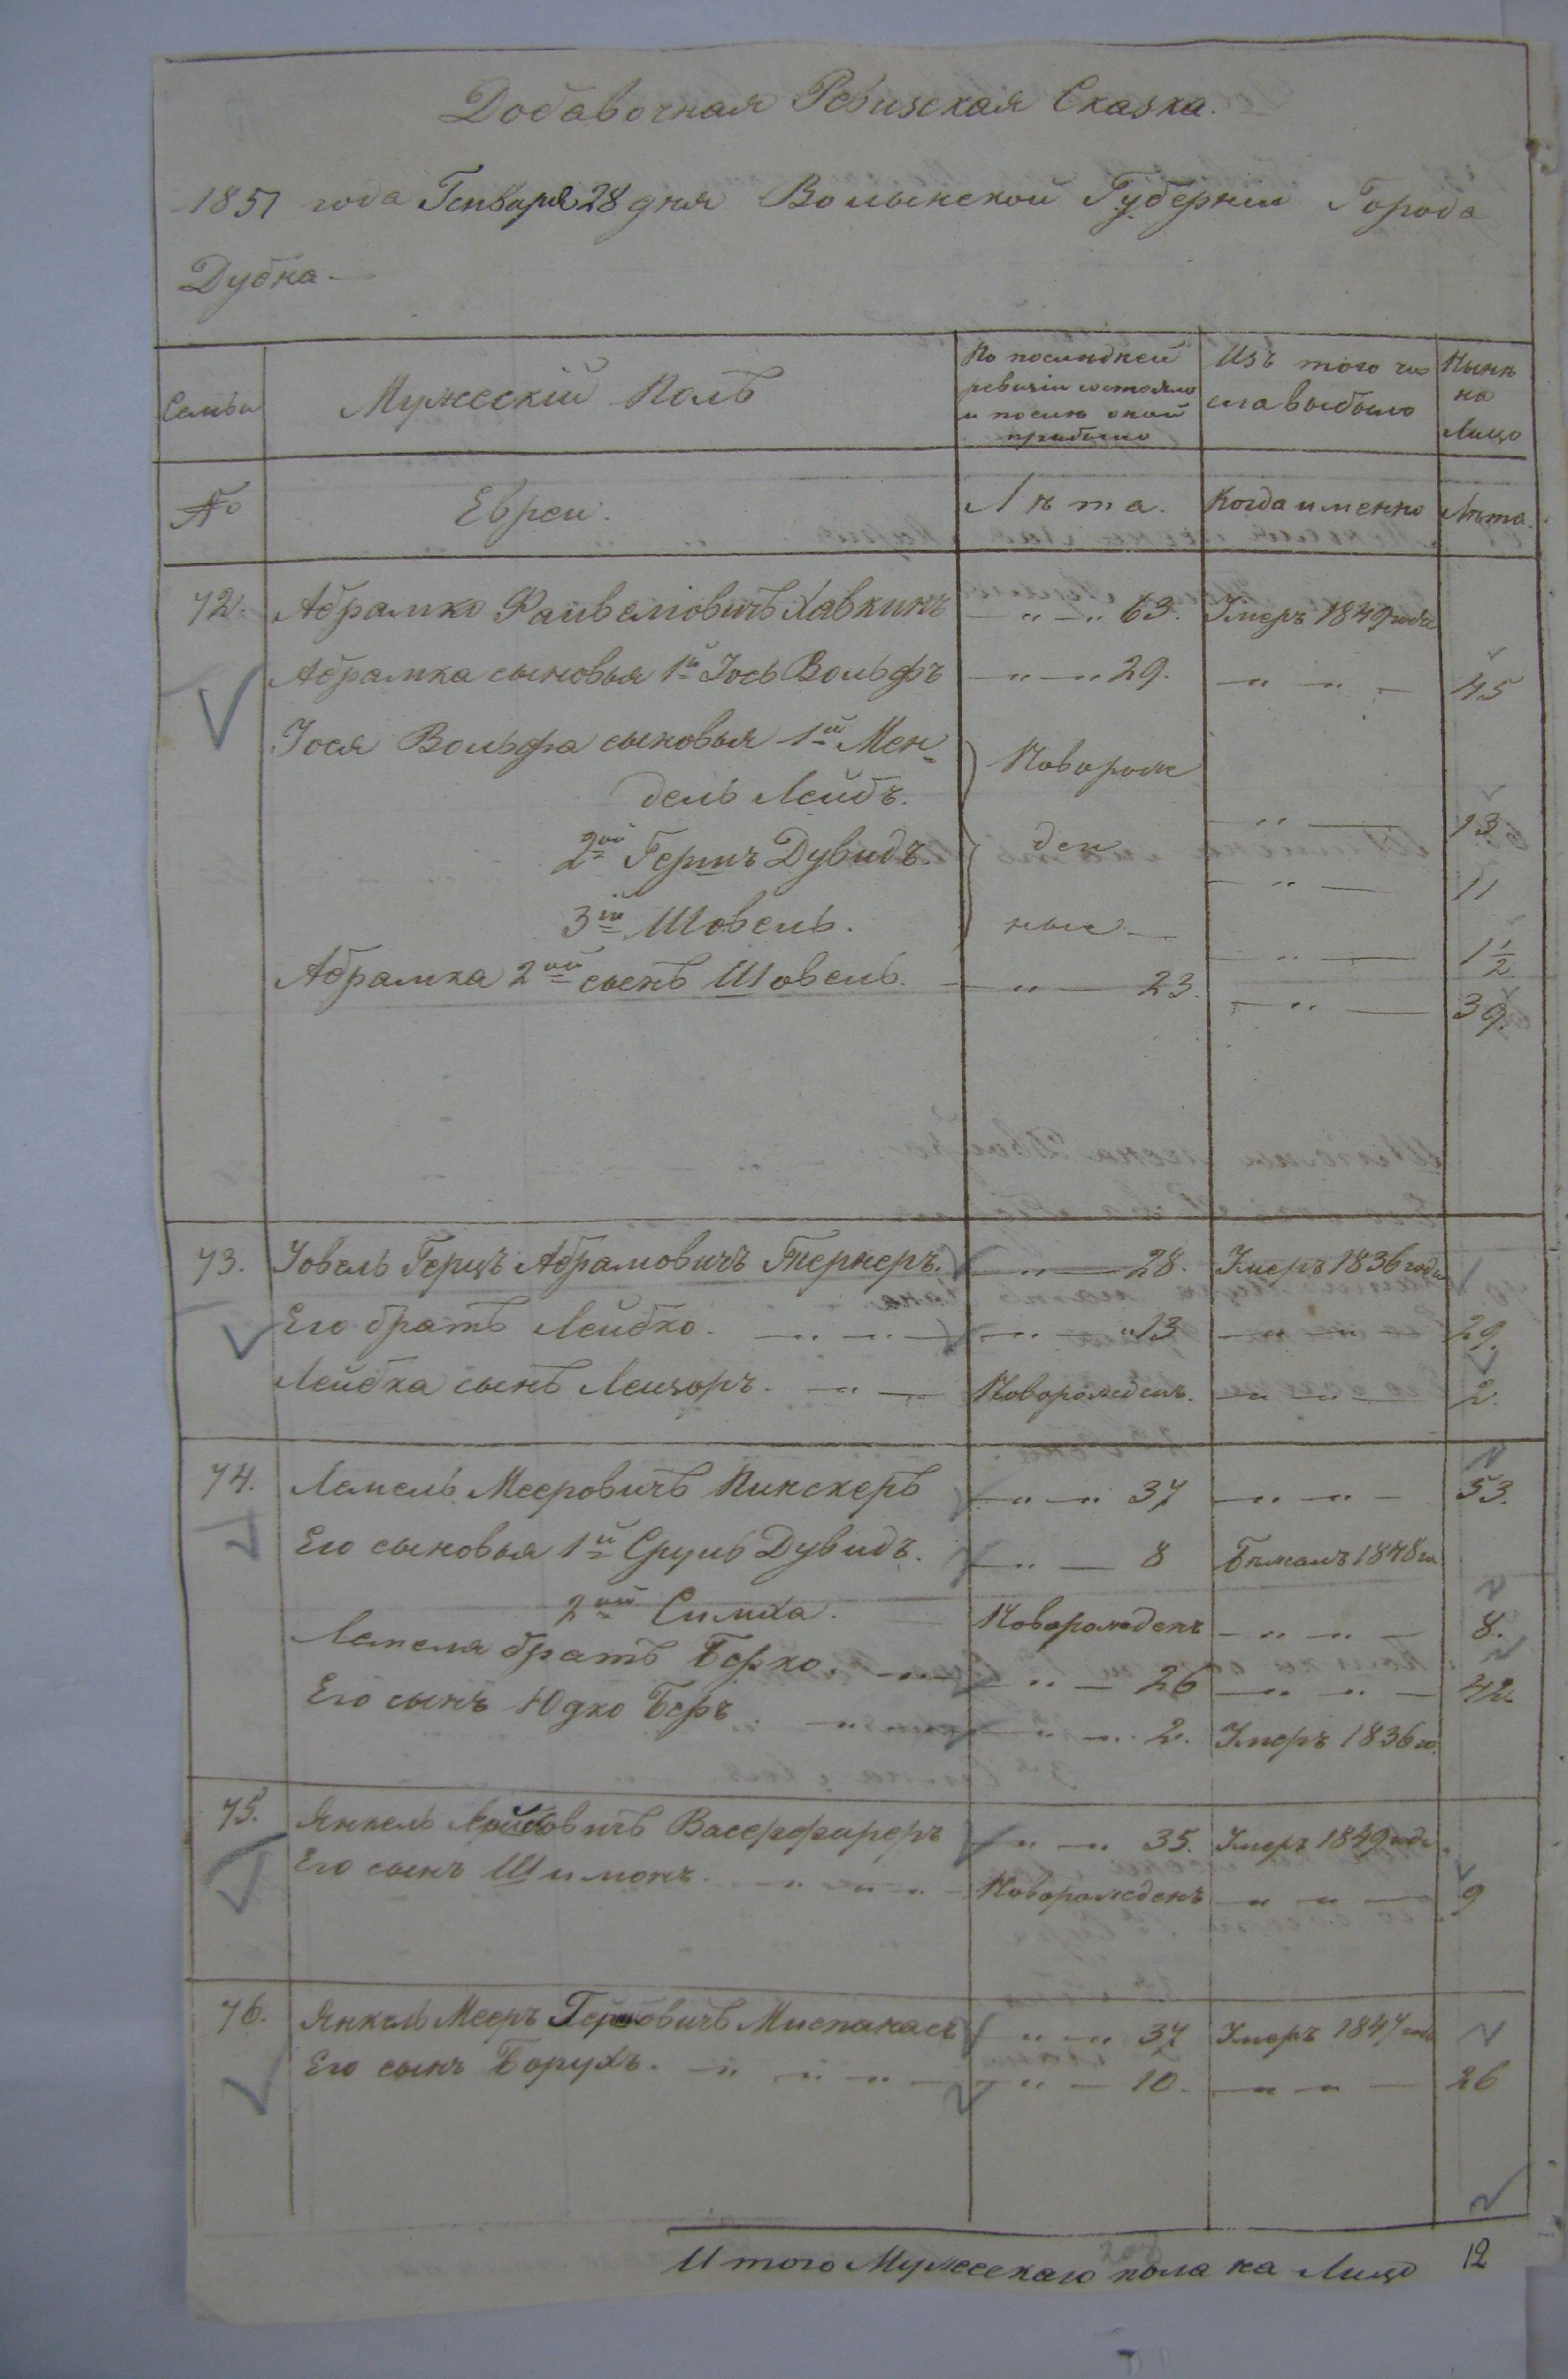 Добавочная Ревизская Сказка.
1851 года Генваря 28 дня Волынской Губерніи Города
Дубна.
Семьи
Мужескій Полъ
По послѣдней
ревизіи состояло
и послѣ оной
прибыло
Изъ того чис
ла выбыло
Нынѣ
на
Лицо
№
Евреи.
Лѣта.
Когда именно
Лѣта.
72. Абрамко Файвелiовичъ Хавкинъ 63. Умеръ 1849 года
Абрамка сыновья 1й Іось Вольфъ 29. 45
Іося Вольфа сыновья 1й Мен-
дель Лейбъ. Новорож 13
2ой Гершъ Дувидъ. ден 11
3ій Шовель. ные 1 1/2
Абрамка 2ой сынъ Шовель. 23. 39.
73. Іовель Герцъ Абрамовичъ Тнернеръ. 28. Умеръ 1836 года
Его братъ Лейбко. 13 29.
Лейбка сынъ Лейзоръ. Новорожденъ. 2.
74. Лемель Мееровичъ Пинскеръ 37 53.
Его сыновья 1й Сруль Дувидъ. 8 Бѣжалъ 1848 го
2ой Симха. Новорожденъ 8.
Лемеля братъ Берко. 26 42.
Его сынъ Юдко Беръ. 2. Умеръ 1836 го.
75. Янкель Лейбовичъ Васерфиреръ 35. Умеръ 1849 года.
Его сынъ Шимонъ. Новорожденъ 9
76. Янкель Мееръ Гершовичъ 37 Умеръ 1847 года
Его сынъ Борухъ. 10. 26
Итого Мужескаго пола на Лицо 12